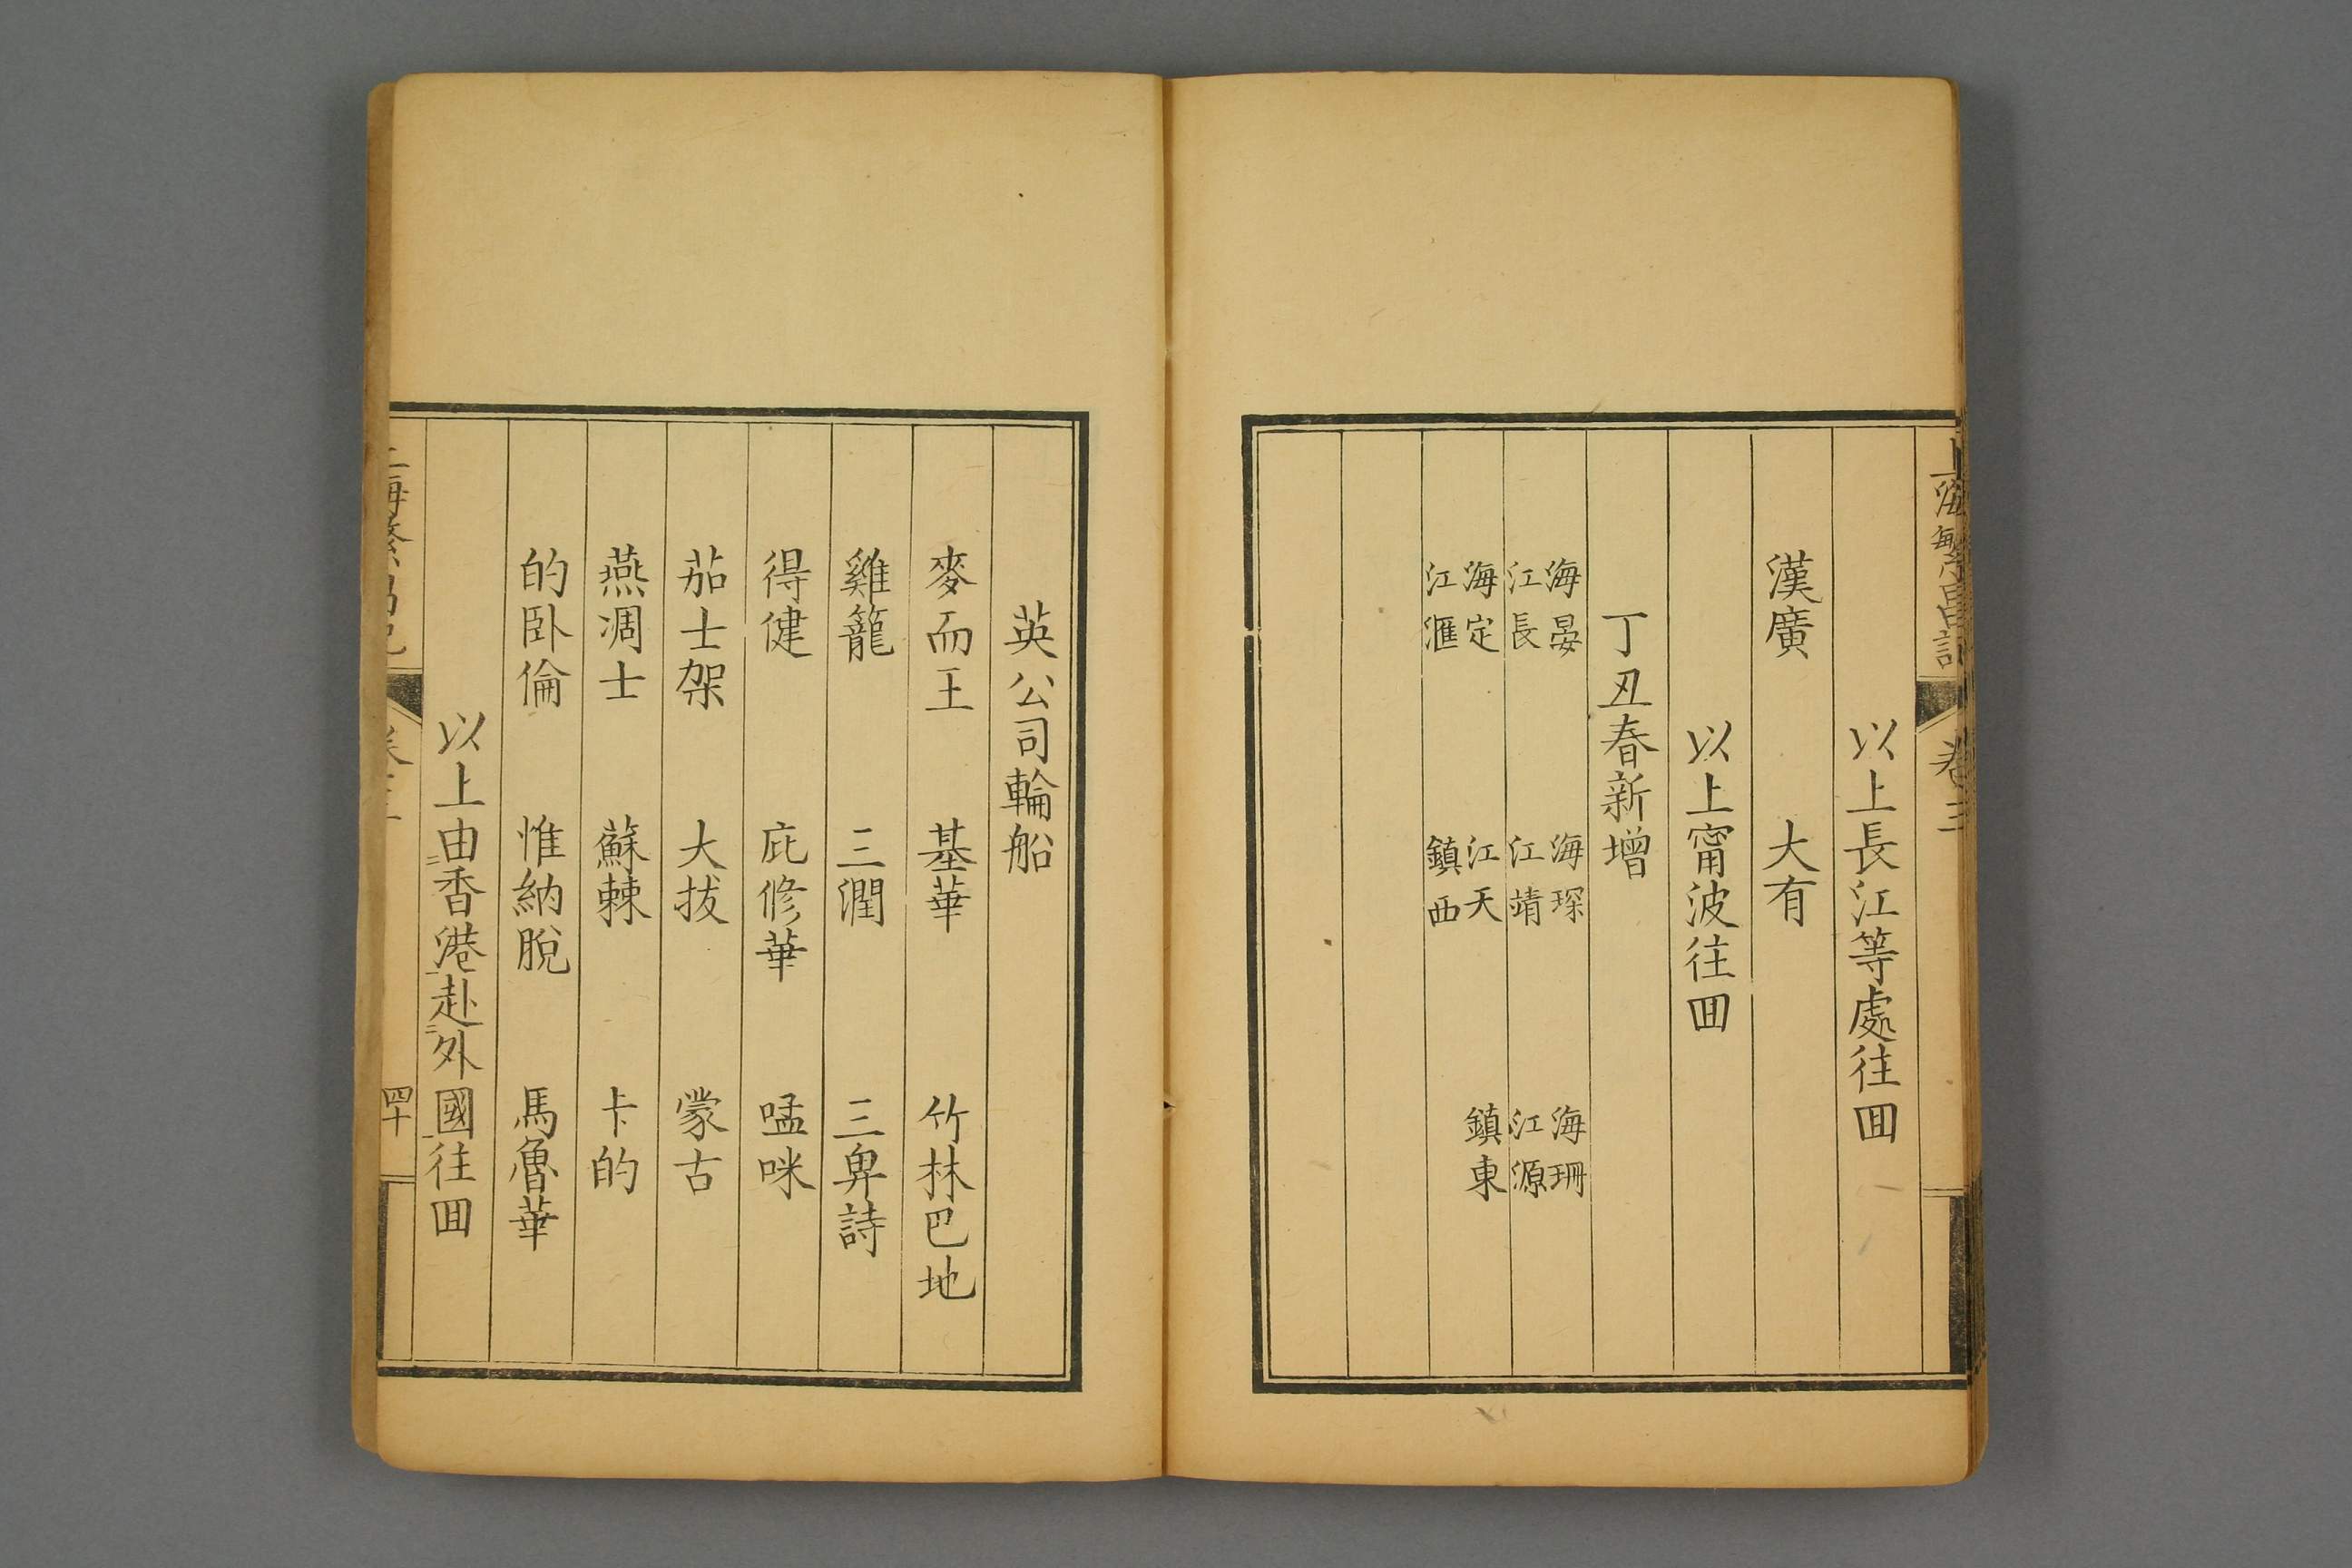 上海繁昌記 卷三
以上長江等處往囬
漢廣 大有
以上甯波往囬
丁丑春新增
海晏 海琛 海珊
江長 江靖 江源
海定 江天 鎮東
江滙 鎮西
英公司輪船
麥而王 基華 竹林巴地
雞籠 三潤 三畁詩
得健 庇修華 唝咪
茄士架 大拔 蒙古
燕凋士 蘇棘 卡的
的卧倫 惟納脫 馬魯華
以上由香港赴外國往囬
上海繁昌記 卷三 四十